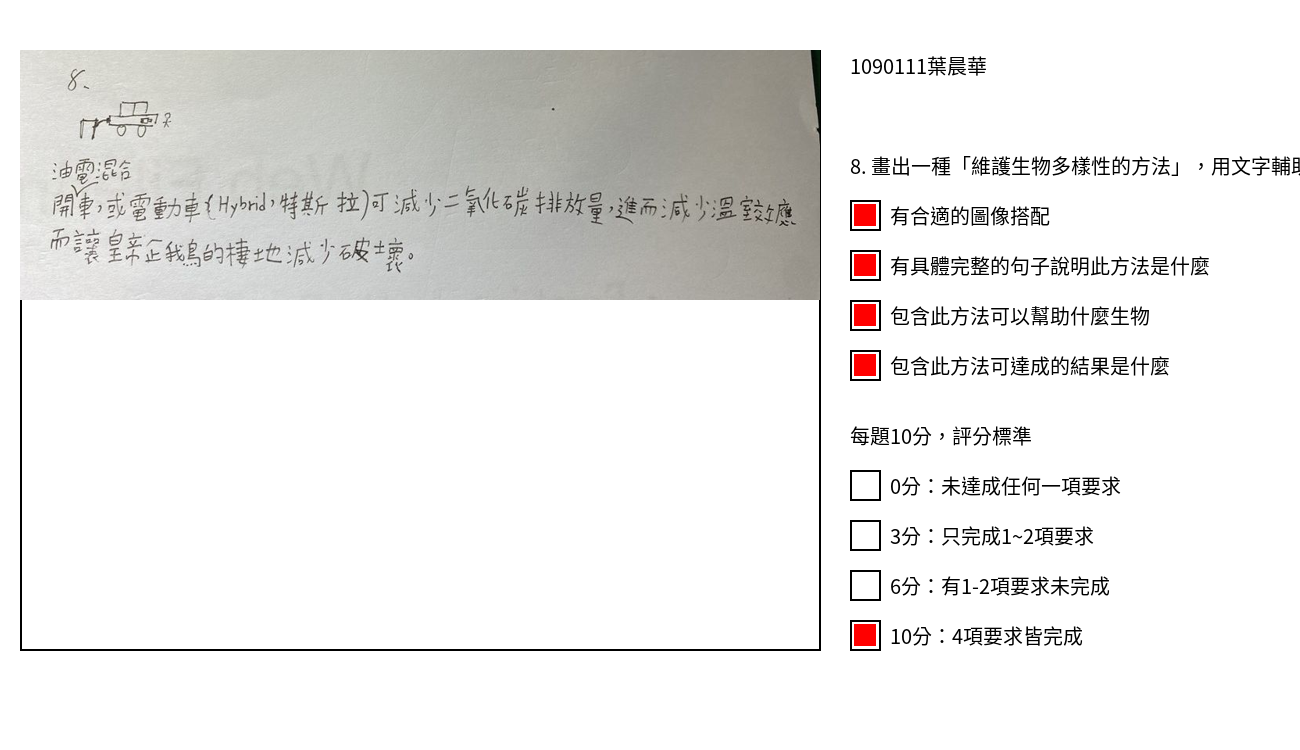 8、
油電混合
開車,或電動車(Hybrid,特斯拉)可減少二氧化碳排放量,進而減少溫室效應
而讓皇帝企鵝的棲地減少破壞。
1090111葉晨華
8. 畫出一種「維護生物多樣性的方法」，用文字輔助
有合適的圖像搭配
有具體完整的句子說明此方法是什麼
包含此方法可以幫助什麼生物
包含此方法可達成的結果是什麼
每題10分，評分標準
0分：未達成任何一項要求
3分：只完成1~2項要求
6分：有1-2項要求未完成
10分：4項要求皆完成